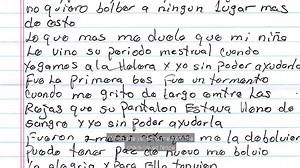 no quiero bolber a ningun lugar mas
de esto
Lo que mas me duele que mi niña
Le vino su periodo mestrual cuando
yogamos a la Halera y yo sin poder ayudarla
Fue La primera bes Fue un tormento
cuando me grito de largo entre Las
Rejas que su pantalon Estava lleno de
sangre y yo sin poder ayudarla
Fueron me la debolvier
Puedo tener Paz de nuevo me bolvio
La alegria y Para Ella tanvien